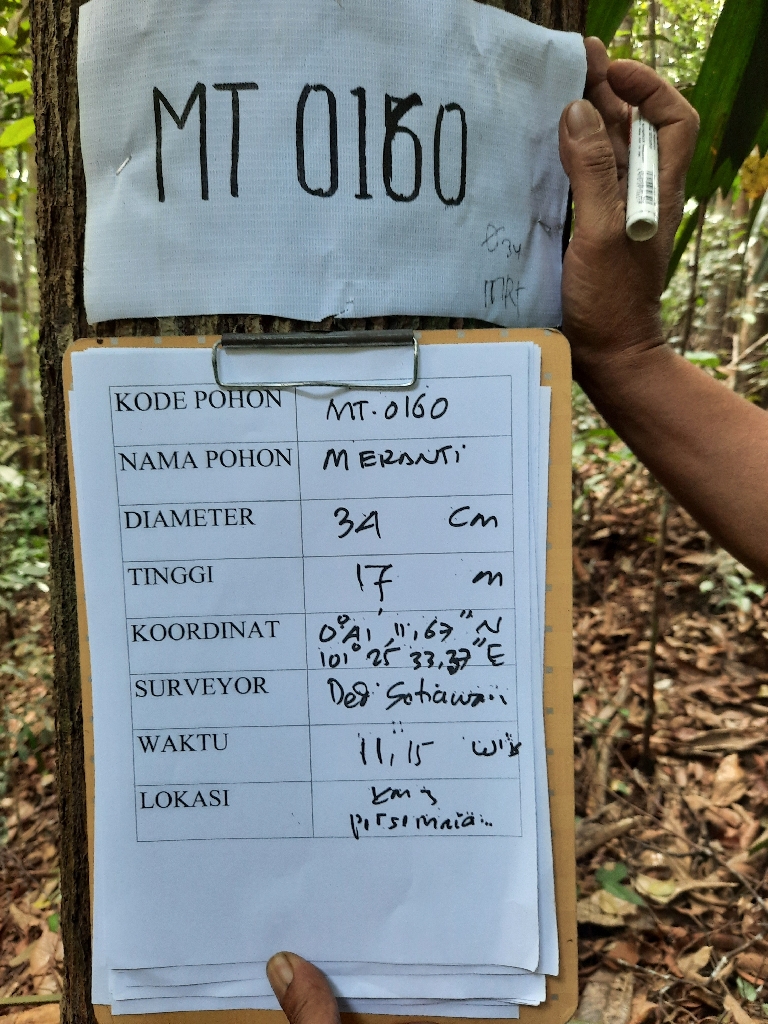 MT 0160
34
MRT
KODE POHON MT.0160
NAMA POHON MERANTI
DIAMETER 34 Cm
TINGGI 17 m
KOORDINAT 0° 41' 11,67" N
101° 25' 33,37" E
SURVEYOR Dedi Setiawan
WAKTU 11,15 WIB
LOKASI km 3